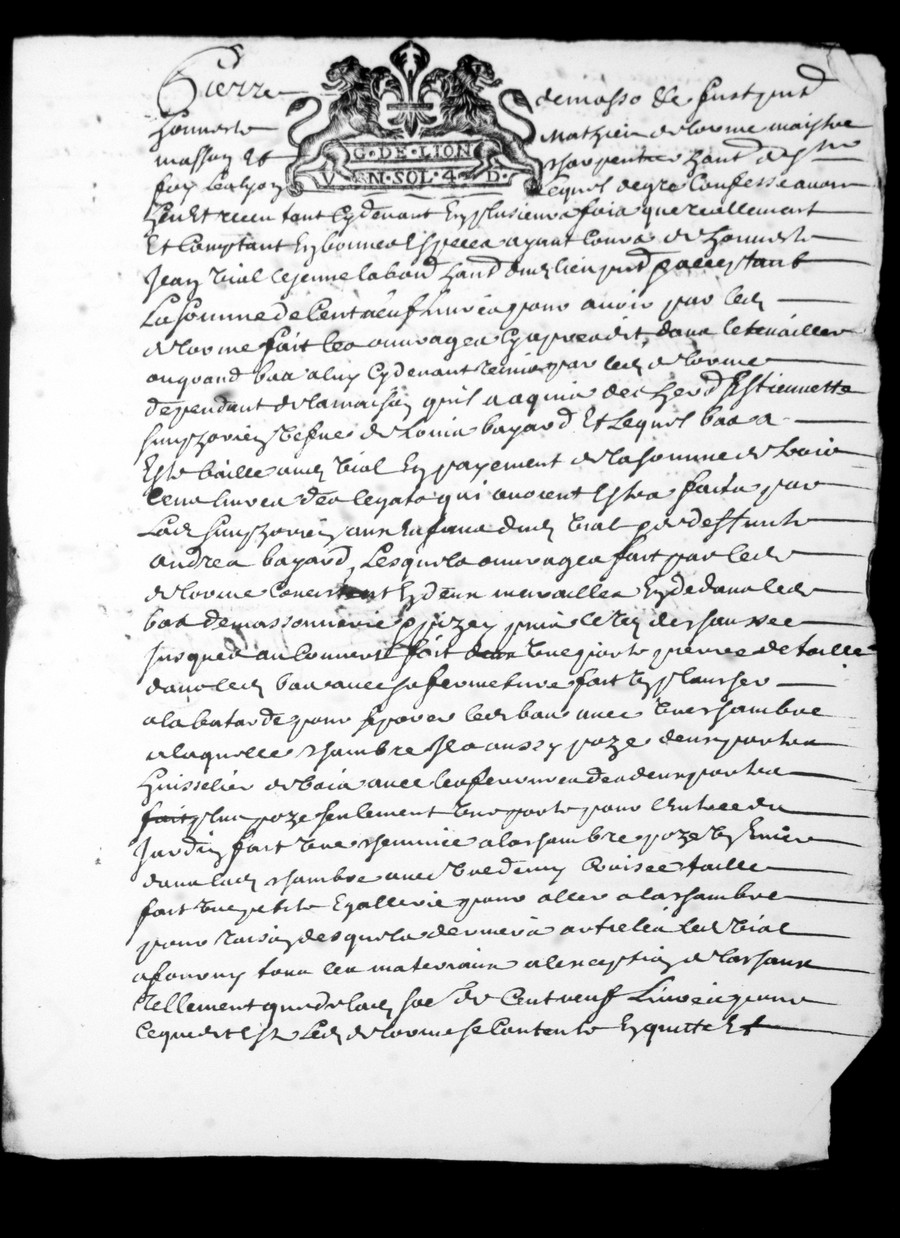 Pierre demasso de fust
honneste Mathieu delorme maistre
G·DE·LION
masson et charpentier hant de ste
V N·SOL·4·D·
foy les lyon lequel de gre confesse avoir
heu et receu tant cydevant en plusieurs fois que reellement
et comptant en bonnes especes ayant cours de honneste
Jean Vial le jeune labor hant dud lieu acceptant
la somme de cent neuf livres pour avoir par led
delorme fait les ouvrages cyapres dit dans le
ou grand bas a luy cydevant remis par led delorme
dependant de la maison quil a aquis des her Estiennette
vefve de Louis bayard et lequel bas a
este baille aud Vial en payement de la somme de trois
cens livres des legats qui avoient estes faits par
lad aux enfans dud Vial par deffunte
andrea bayard, lesquels ouvrages fait par led
delorme consistent en deux murailles en dedans led
bas de massonnerie
jusques au couvert fait une porte pierre de taille
dans led bas avec sa fermeture fait un plancher
a la batarde pour separer led bas avec une chambre
a laquelle chambre il a aussy poze deux portes
de bois avec les ferrures des deux portes
plus poze seulement une porte pour lentree du
jardin fait une cheminee a la chambre poze un
dans lad chambre avec une demy croisee taille
fait une petite gallerie pour aller a la chambre
pour raison desquels derniers articles led Vial
a fourny tous les materiaux a lexception de la chaux
tellement que de lad so de cent neuf livres pour
ce que dit est led delorme se contente en quitte et